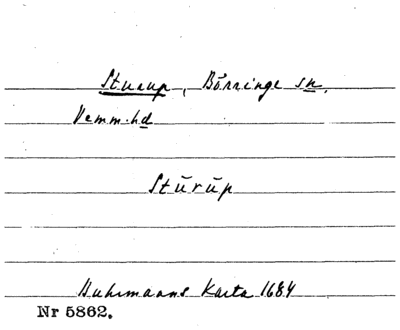 Sturup, Börringe sn.
Vemm. hd
Stūrūp
Buhrmanns Karta 1684
Nr 5862.